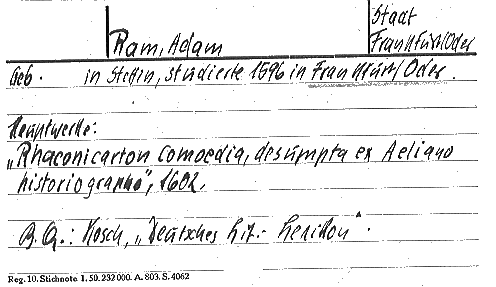 Ram, Adam
Stadt
Frankfurt/Oder
Geb. in Stettin, studierte 1596 in Frankfurt/Oder.
Hauptwerke:
„Rhaconicarton Comoedia, desumpta ex Aeliano
historiographo", 1602.
B.Q.: Kosch, „Deutsches Lit.-Lexikon".
Reg. 10. Stichnote 1. 50. 232000. A. 803. S. 4062